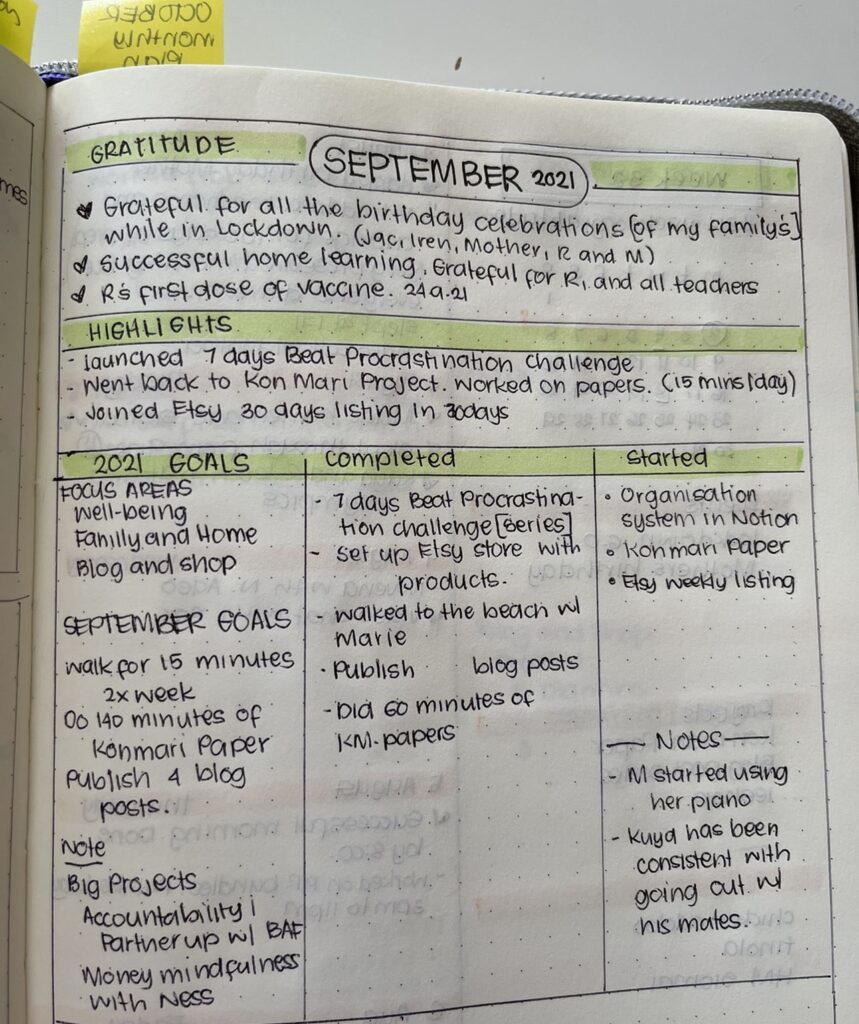 OCTOBER
monthly
plan
mes
GRATITUDE
SEPTEMBER 2021
Grateful for all the birthday celebrations [of my family's]
while in Lockdown. (Jac, Iren, Mother, R and M)
Successful home learning. Grateful for R, and all teachers
R's first dose of vaccine. 24.9.21
HIGHLIGHTS
- launched 7 days Beat Procrastination challenge
- Went back to Kon Mari Project. Worked on papers. (15 mins/day)
- Joined Etsy 30 days listing in 30days
2021 GOALS
FOCUS AREAS
Well-being
Family and Home
Blog and shop
SEPTEMBER GOALS
Walk for 15 minutes
2x week
Do 140 minutes of
Konmari Paper
Publish 4 blog
posts.
Note
Big Projects
Accountability |
Partner up w/ BAF
Money mindfulness
with Ness
Completed
- 7 days Beat Procrastina-
tion challenge [series]
- Set up Etsy store with
products.
- walked to the beach w/
Marie
- Publish blog posts
- Did 60 minutes of
KM-papers
Started
• Organisation
system in Notion
• Konmari Paper
• Etsy weekly listing
— Notes —
- M started using
her piano
- Kuya has been
consistent with
going out w/
his mates.